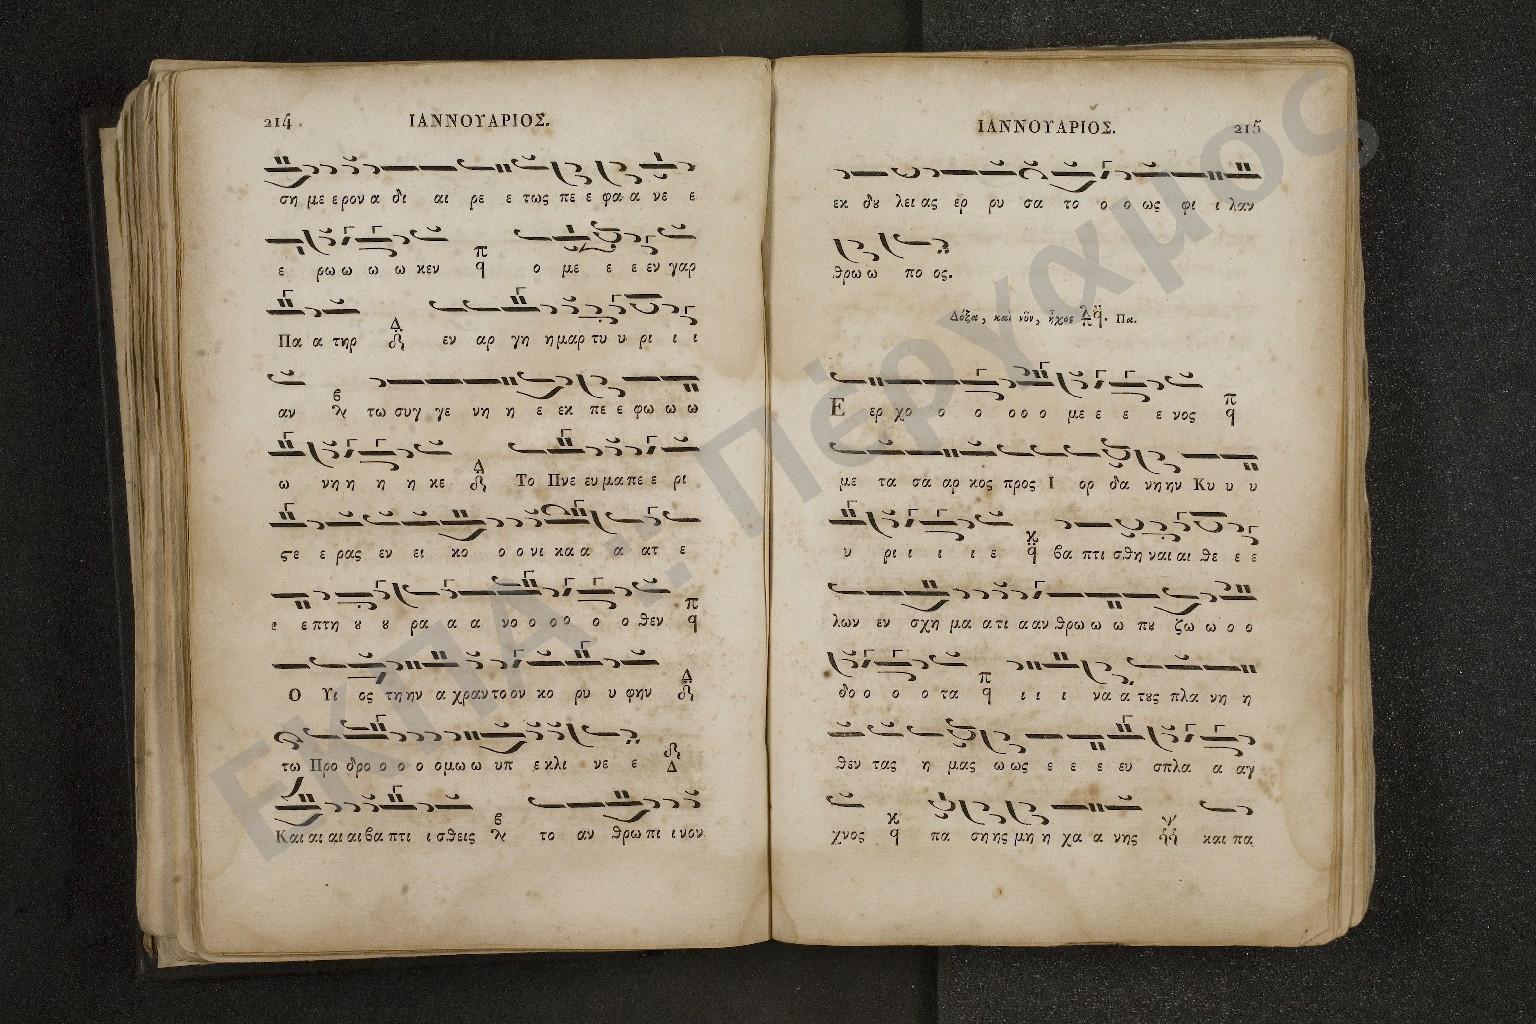 214 ΙΑΝΝΟΥΑΡΙΟΣ.
ση με ε ρον α δι αι ρε ε τως πε ε φα α νε ε
ε ρω ω ω ω κεν ο με ε ε εν γαρ
Πα α τηρ εν αρ γη η μαρ τυ υ ρι ι ι
αν τω συγ γε νη η ε εκ πε ε φω ω ω
ω νη η η η κε Το Πνε ευ μα πε ε ρι
ϛε ε ρας εν ει κο ο ο νι κα α α ατ ε
ε ε πτη ȣ ȣ ρα α α νο ο ο ο ο ο θεν
Ο Υι ος τη ην α χραν το ον κο ρυ υ φην
τω Προ δρο ο ο ο ο μω ω υπ ε κλι νε ε
Και αι αι αι βα πτι ι σθεις το αν θρω πι ι νον
ΙΑΝΝΟΥΑΡΙΟΣ. 215
εκ δȣ λει ας ερ ρυ σα το ο ο ως φι ι λαν
θρω ω πο ος.
Δόξα, καὶ νῦν, ἦχος Πα.
Ε ερ χο ο ο ο ο ο με ε ε ε ε νος
με τα σα αρ κος προς Ι ορ δα νη ην Κυ υ υ
υ ρι ι ι ι ι ε βα πτι σθη ναι αι θε ε ε
λων εν σχη μα α τι α αν θρω ω ω πȣ ζω ω ο ο
δο ο ο ο τα ι ι ι να α τȣς πλα νη η
θεν τας η μας ω ως ε ε ε ευ σπλα α αγ
χνος πα ση ης μη η χα α νης και πα
ΕΚΠΑ .: Πέργαμος